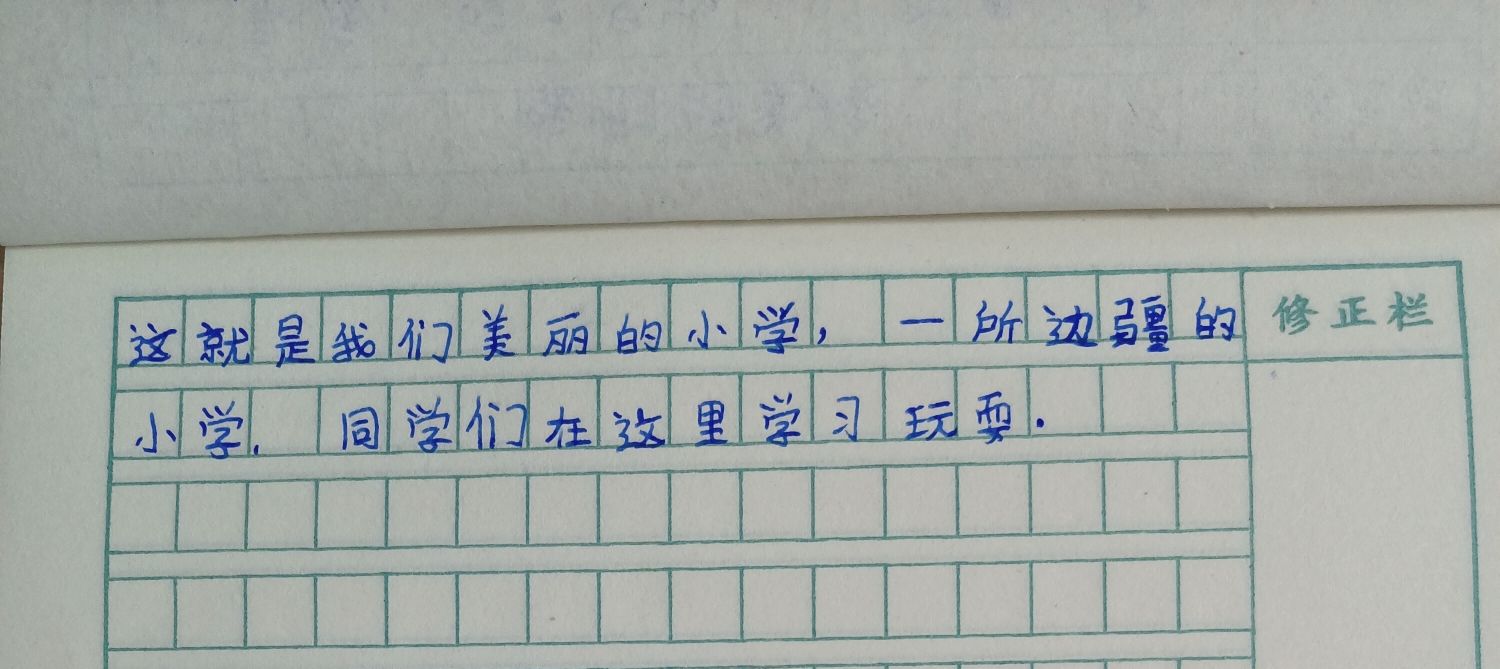 这就是我们美丽的小学，一所边疆的
修正栏
小学.同学们在这里学习玩耍.